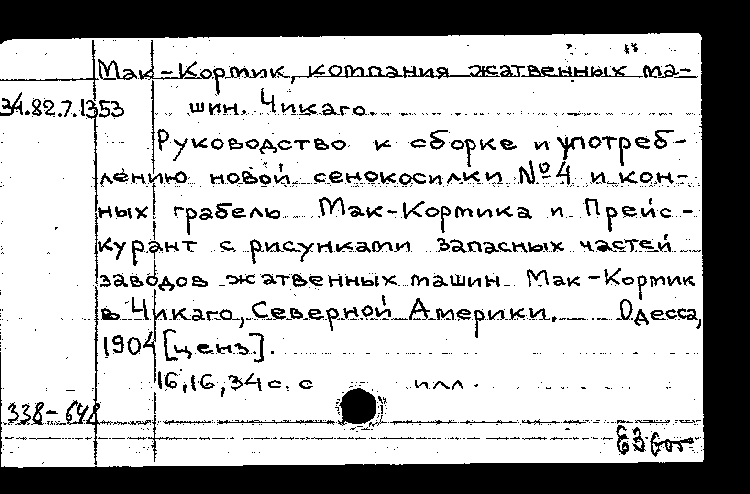 Мак-Кормик, компания жатвенных ма-
34.82.7.1353 шин. Чикаго.
Руководство к сборке и употреб-
лению новой сенокосилки №4 и кон-
ных грабель Мак-Кормика и Прейс-
курант с рисунками запасных частей
заводов жатвенных машин Мак-Кормик
в Чикаго, Северной Америки. Одесса,
1904 [ценз].
16,16,34 с. с илл.
338-648